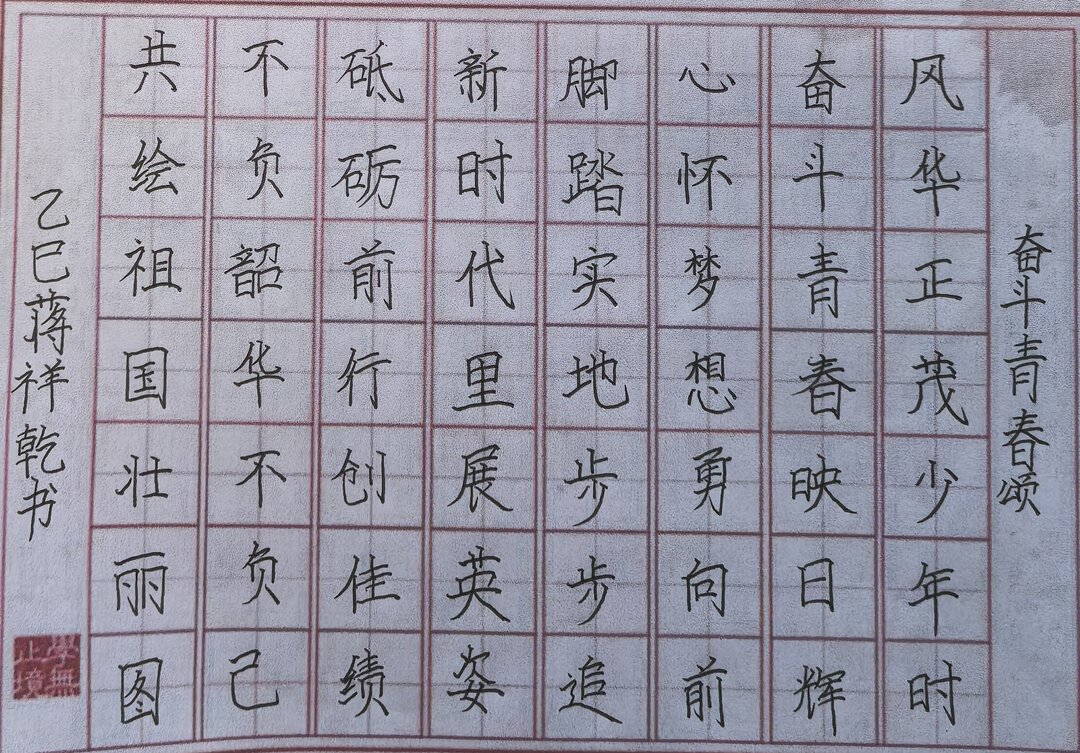 奋斗青春颂
风华正茂少年时
奋斗青春映日辉
心怀梦想勇向前
脚踏实地步步追
新时代里展英姿
砥砺前行创佳绩
不负韶华不负己
共绘祖国壮丽图
乙巳蒋祥乾书
學無止境